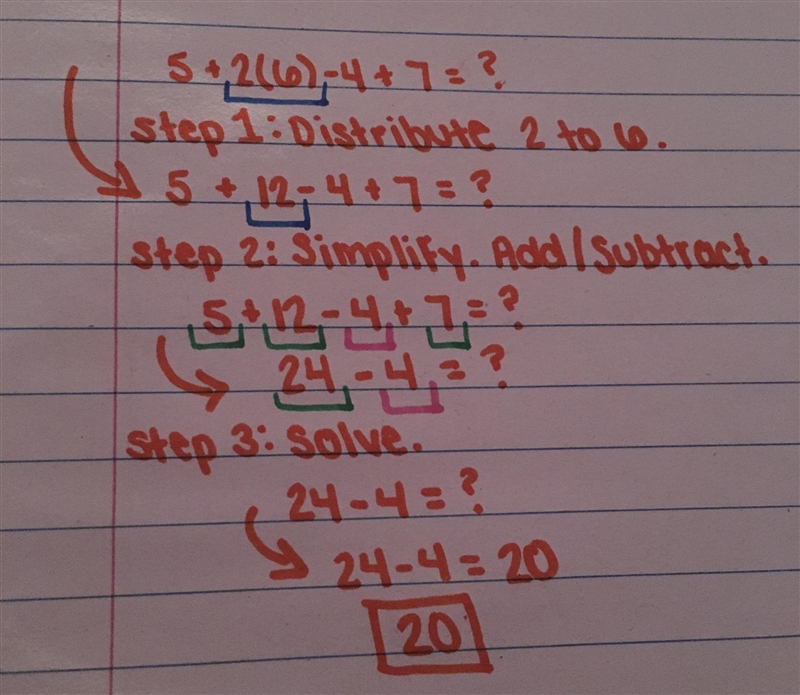 5 + 2(6) - 4 + 7 = ?
step 1: Distribute 2 to 6.
5 + 12 - 4 + 7 = ?
step 2: Simplify. Add/Subtract.
5 + 12 - 4 + 7 = ?
24 - 4 = ?
step 3: Solve.
24 - 4 = ?
24 - 4 = 20
20